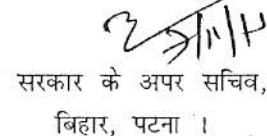 सरकार के अपर सचिव,
बिहार, पटना ।